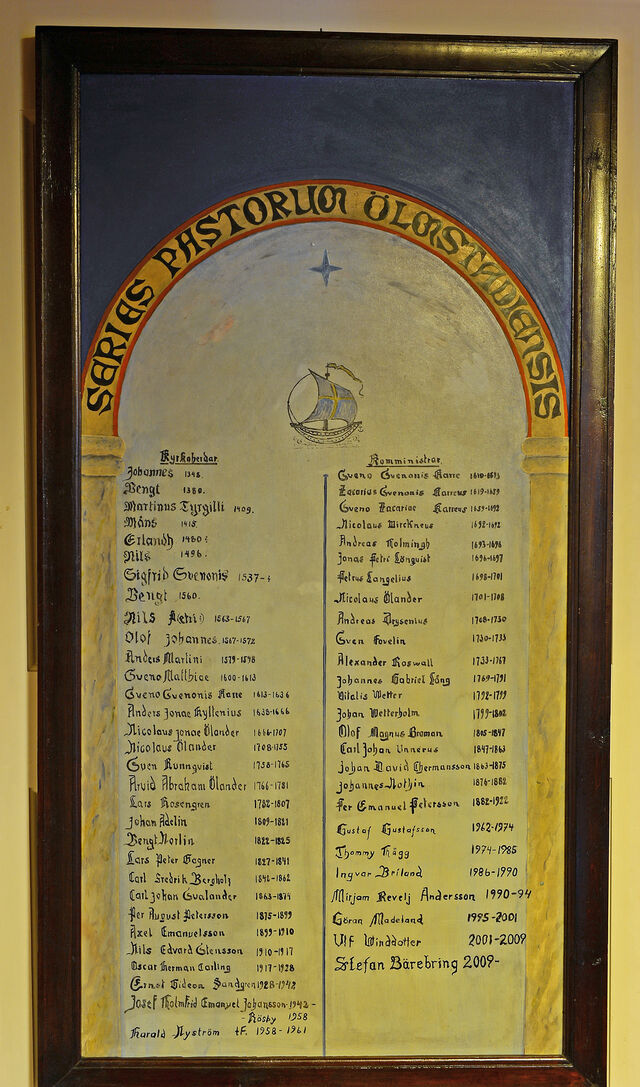 SERIES PASTORUM ÖLMSTADIENSIS
Kyrkoherdar.
Johannes 1345.
Bengt 1380.
Martinus Tyrgilli 1409.
Måns 1415.
Erlandh 1480
Nils 1496.
Sigfrid Svenonis 1537-
Bengt 1560.
Nils 1563-1567
Olof Johannes 1567-1572
Anders Martini 1579-1598
Sveno Matthiae 1600-1613
Sveno Svenonis Kane 1613-1636
Anders Jonae Hyltenius 1638-1666
Nicolaus Jonae Ölander 1666-1707
Nicolaus Ölander 1708-1755
Sven Runnquist 1758-1765
Arvid Abraham Ölander 1766-1781
Lars Rosengren 1782-1807
Johan Adelin 1809-1821
Bengt Norlin 1822-1825
Lars Peter Gagner 1827-1841
Carl Fredrik Bergholz 1842-1862
Carl Johan Svalander 1863-1874
Per August Petersson 1875-1899
Axel Emanuelsson 1899-1910
Nils Edvard Stensson 1910-1917
Oscar Herman Carling 1917-1928
Ernst Gideon Sandgren 1928-1942
Josef Tholmfrid Emanuel Johansson-1942-
-Rösby 1958
Harald Nyström tf. 1958-1961
Komministrar.
Sveno Svenonis Kane 1610-1613
Zacarius Svenonis Karreus 1619-1659
Sveno Zacariae Karreus 1659-1692
Nicolaus Wirckneus 1692-1692
Andreas Holmingh 1693-1696
Jonas Petri Lönquist 1696-1697
Petrus Langelius 1698-1701
Nicolaus Ölander 1701-1708
Andreas Drysenius 1708-1730
Sven Fovelin 1730-1733
Alexander Roswall 1733-1767
Johannes Gabriel Lång 1769-1791
Vitalis Wetter 1792-1799
Johan Wetterholm 1799-1802
Olof Magnus Broman 1805-1847
Carl Johan Unnerus 1847-1863
Johan David Thermansson 1863-1875
Johannes Nothin 1876-1882
Per Emanuel Petersson 1882-1922
Gustaf Gustafsson 1962-1974
Thommy Hägg 1974-1985
Ingvar Briland 1986-1990
Mirjam Revelj Andersson 1990-94
Göran Madeland 1995-2001
Ulf Winddotter 2001-2009
Stefan Bärebring 2009-